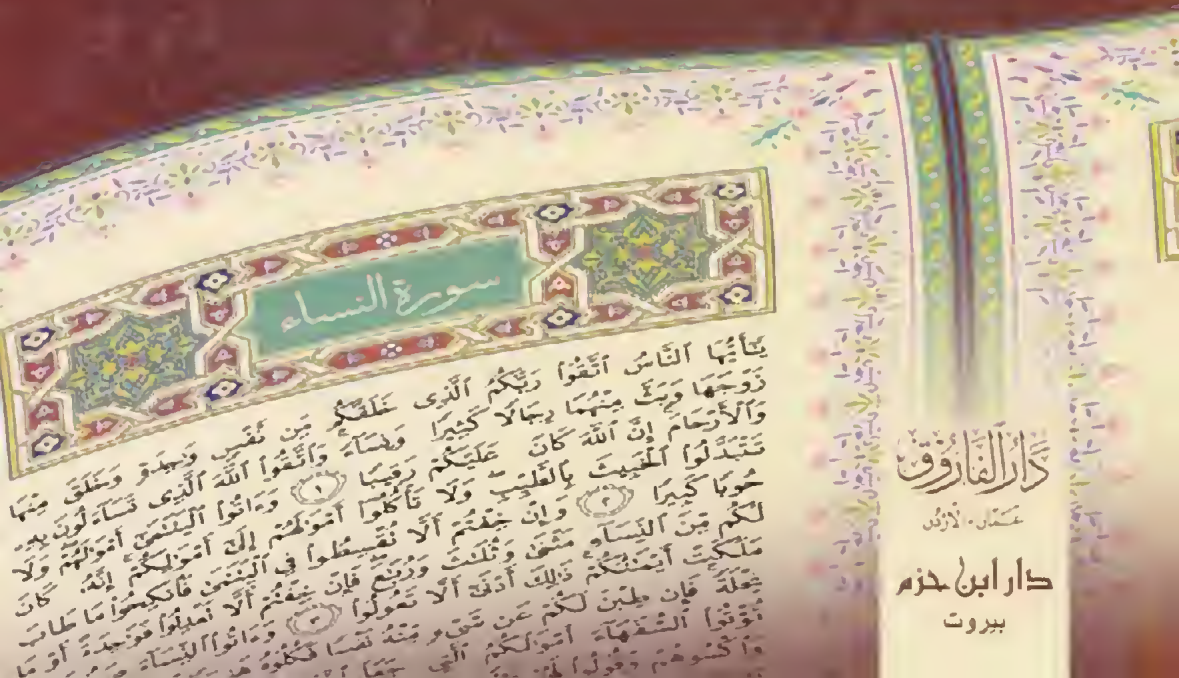 سورة النساء
يَٰٓأَيُّهَا ٱلنَّاسُ ٱتَّقُوا۟ رَبَّكُمُ ٱلَّذِى خَلَقَكُم مِّن نَّفْسٍ وَٰحِدَةٍ وَخَلَقَ مِنْهَا
زَوْجَهَا وَبَثَّ مِنْهُمَا رِجَالًا كَثِيرًا وَنِسَآءً وَٱتَّقُوا۟ ٱللَّهَ ٱلَّذِى تَسَآءَلُونَ بِهِۦ
وَٱلْأَرْحَامَ إِنَّ ٱللَّهَ كَانَ عَلَيْكُمْ رَقِيبًا ١ وَءَاتُوا۟ ٱلْيَتَٰمَىٰٓ أَمْوَٰلَهُمْ وَلَا
تَتَبَدَّلُوا۟ ٱلْخَبِيثَ بِٱلطَّيِّبِ وَلَا تَأْكُلُوٓا۟ أَمْوَٰلَهُمْ إِلَىٰٓ أَمْوَٰلِكُمْ إِنَّهُۥ كَانَ
حُوبًا كَبِيرًا ٢ وَإِنْ خِفْتُمْ أَلَّا تُقْسِطُوا۟ فِى ٱلْيَتَٰمَىٰ فَٱنكِحُوا۟ مَا طَابَ
لَكُم مِّنَ ٱلنِّسَآءِ مَثْنَىٰ وَثُلَٰثَ وَرُبَٰعَ فَإِنْ خِفْتُمْ أَلَّا تَعْدِلُوا۟ فَوَٰحِدَةً أَوْ مَا
مَلَكَتْ أَيْمَٰنُكُمْ ذَٰلِكَ أَدْنَىٰٓ أَلَّا تَعُولُوا۟ ٣ وَءَاتُوا۟ ٱلنِّسَآءَ
نِحْلَةً فَإِن طِبْنَ لَكُمْ عَن شَىْءٍ مِّنْهُ نَفْسًا فَكُلُوهُ
تُؤْتُوا۟ ٱلسُّفَهَآءَ أَمْوَٰلَكُمُ ٱلَّتِى
وَٱكْسُوهُمْ وَقُولُوا۟ لَهُمْ
دَارُ الفَارُوق
عَمّان - الأردن
دار ابن حزم
بيروت